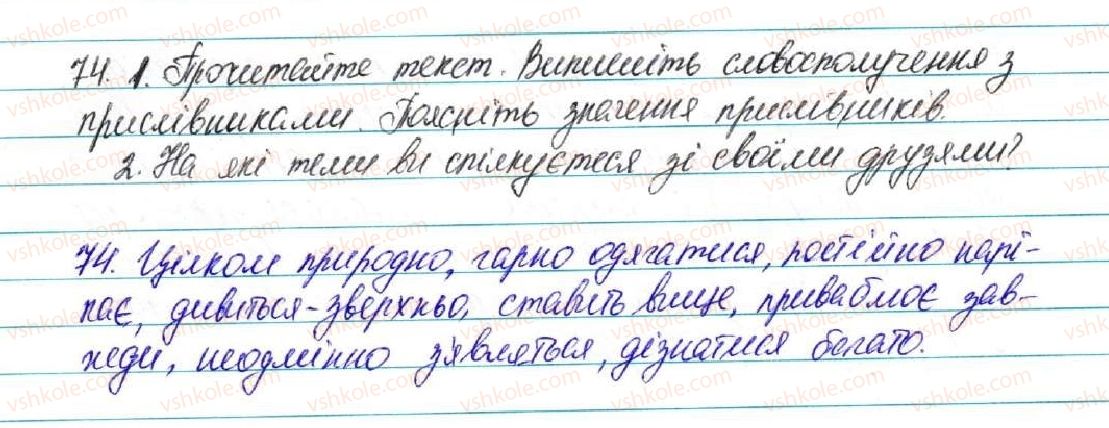 74. 1. Прочитайте текст. Випишіть словосполучення з
прислівниками. Поясніть значення прислівників.
2. На які теми ви спілкуєтеся зі своїми друзями?
74. Цілком природно, гарно одягатися, постійно нарі-
кає, дивиться-зверхньо, ставить вище, приваблює зав-
жди, неодмінно з'являться, дізнатися багато.
vshkole.com